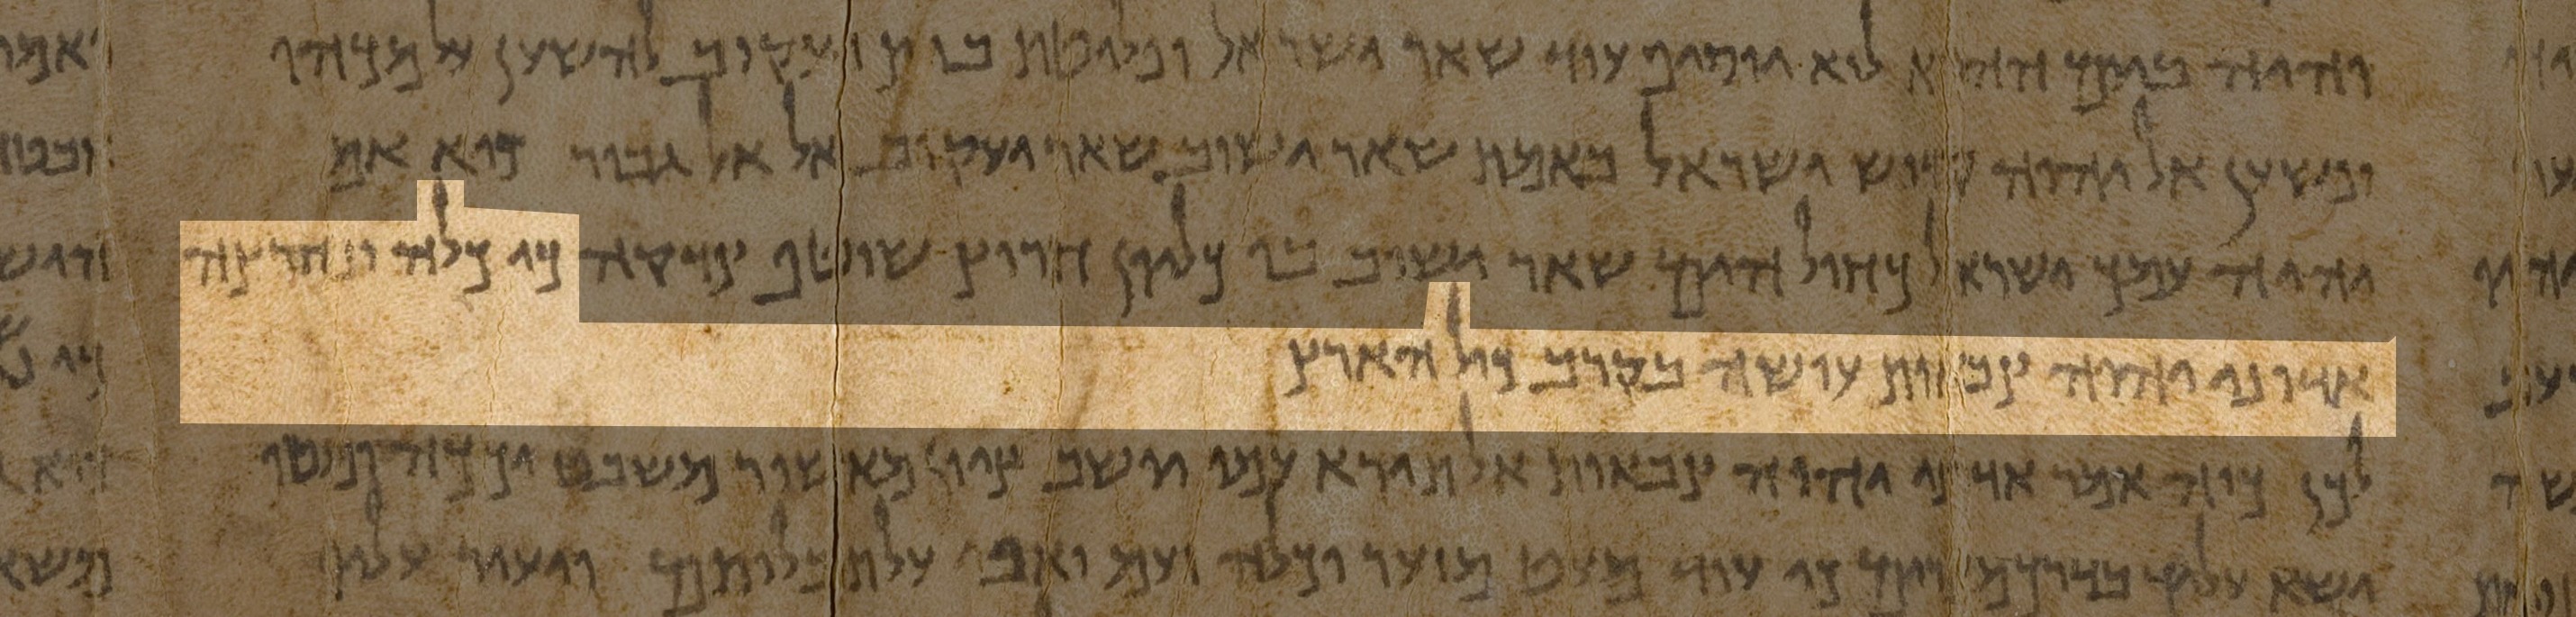 והיה ביום ההוא לוא יוסיף עוד שאר ישראל ופליטת בית יעקוב להשען על מכהו
ונשען אל יהוה קדוש ישראל באמת שאר ישוב שאר יעקוב אל אל גבור כיא אם
יהיה עמך ישראל כחול הים שאר ישוב בו כליון חרוץ שוטף צדקה כי כלה ונחרצה
אדוני יהוה צבאות עושה בקרב כול הארץ
לכן כוה אמר אדוני יהוה צבאות אל תירא עמי יושב ציון מאשור משבט
ישא עליך בדרך מצרים כי עוד מעט מזער וכלה זעם ואפי על תבליתם ויעור עליו